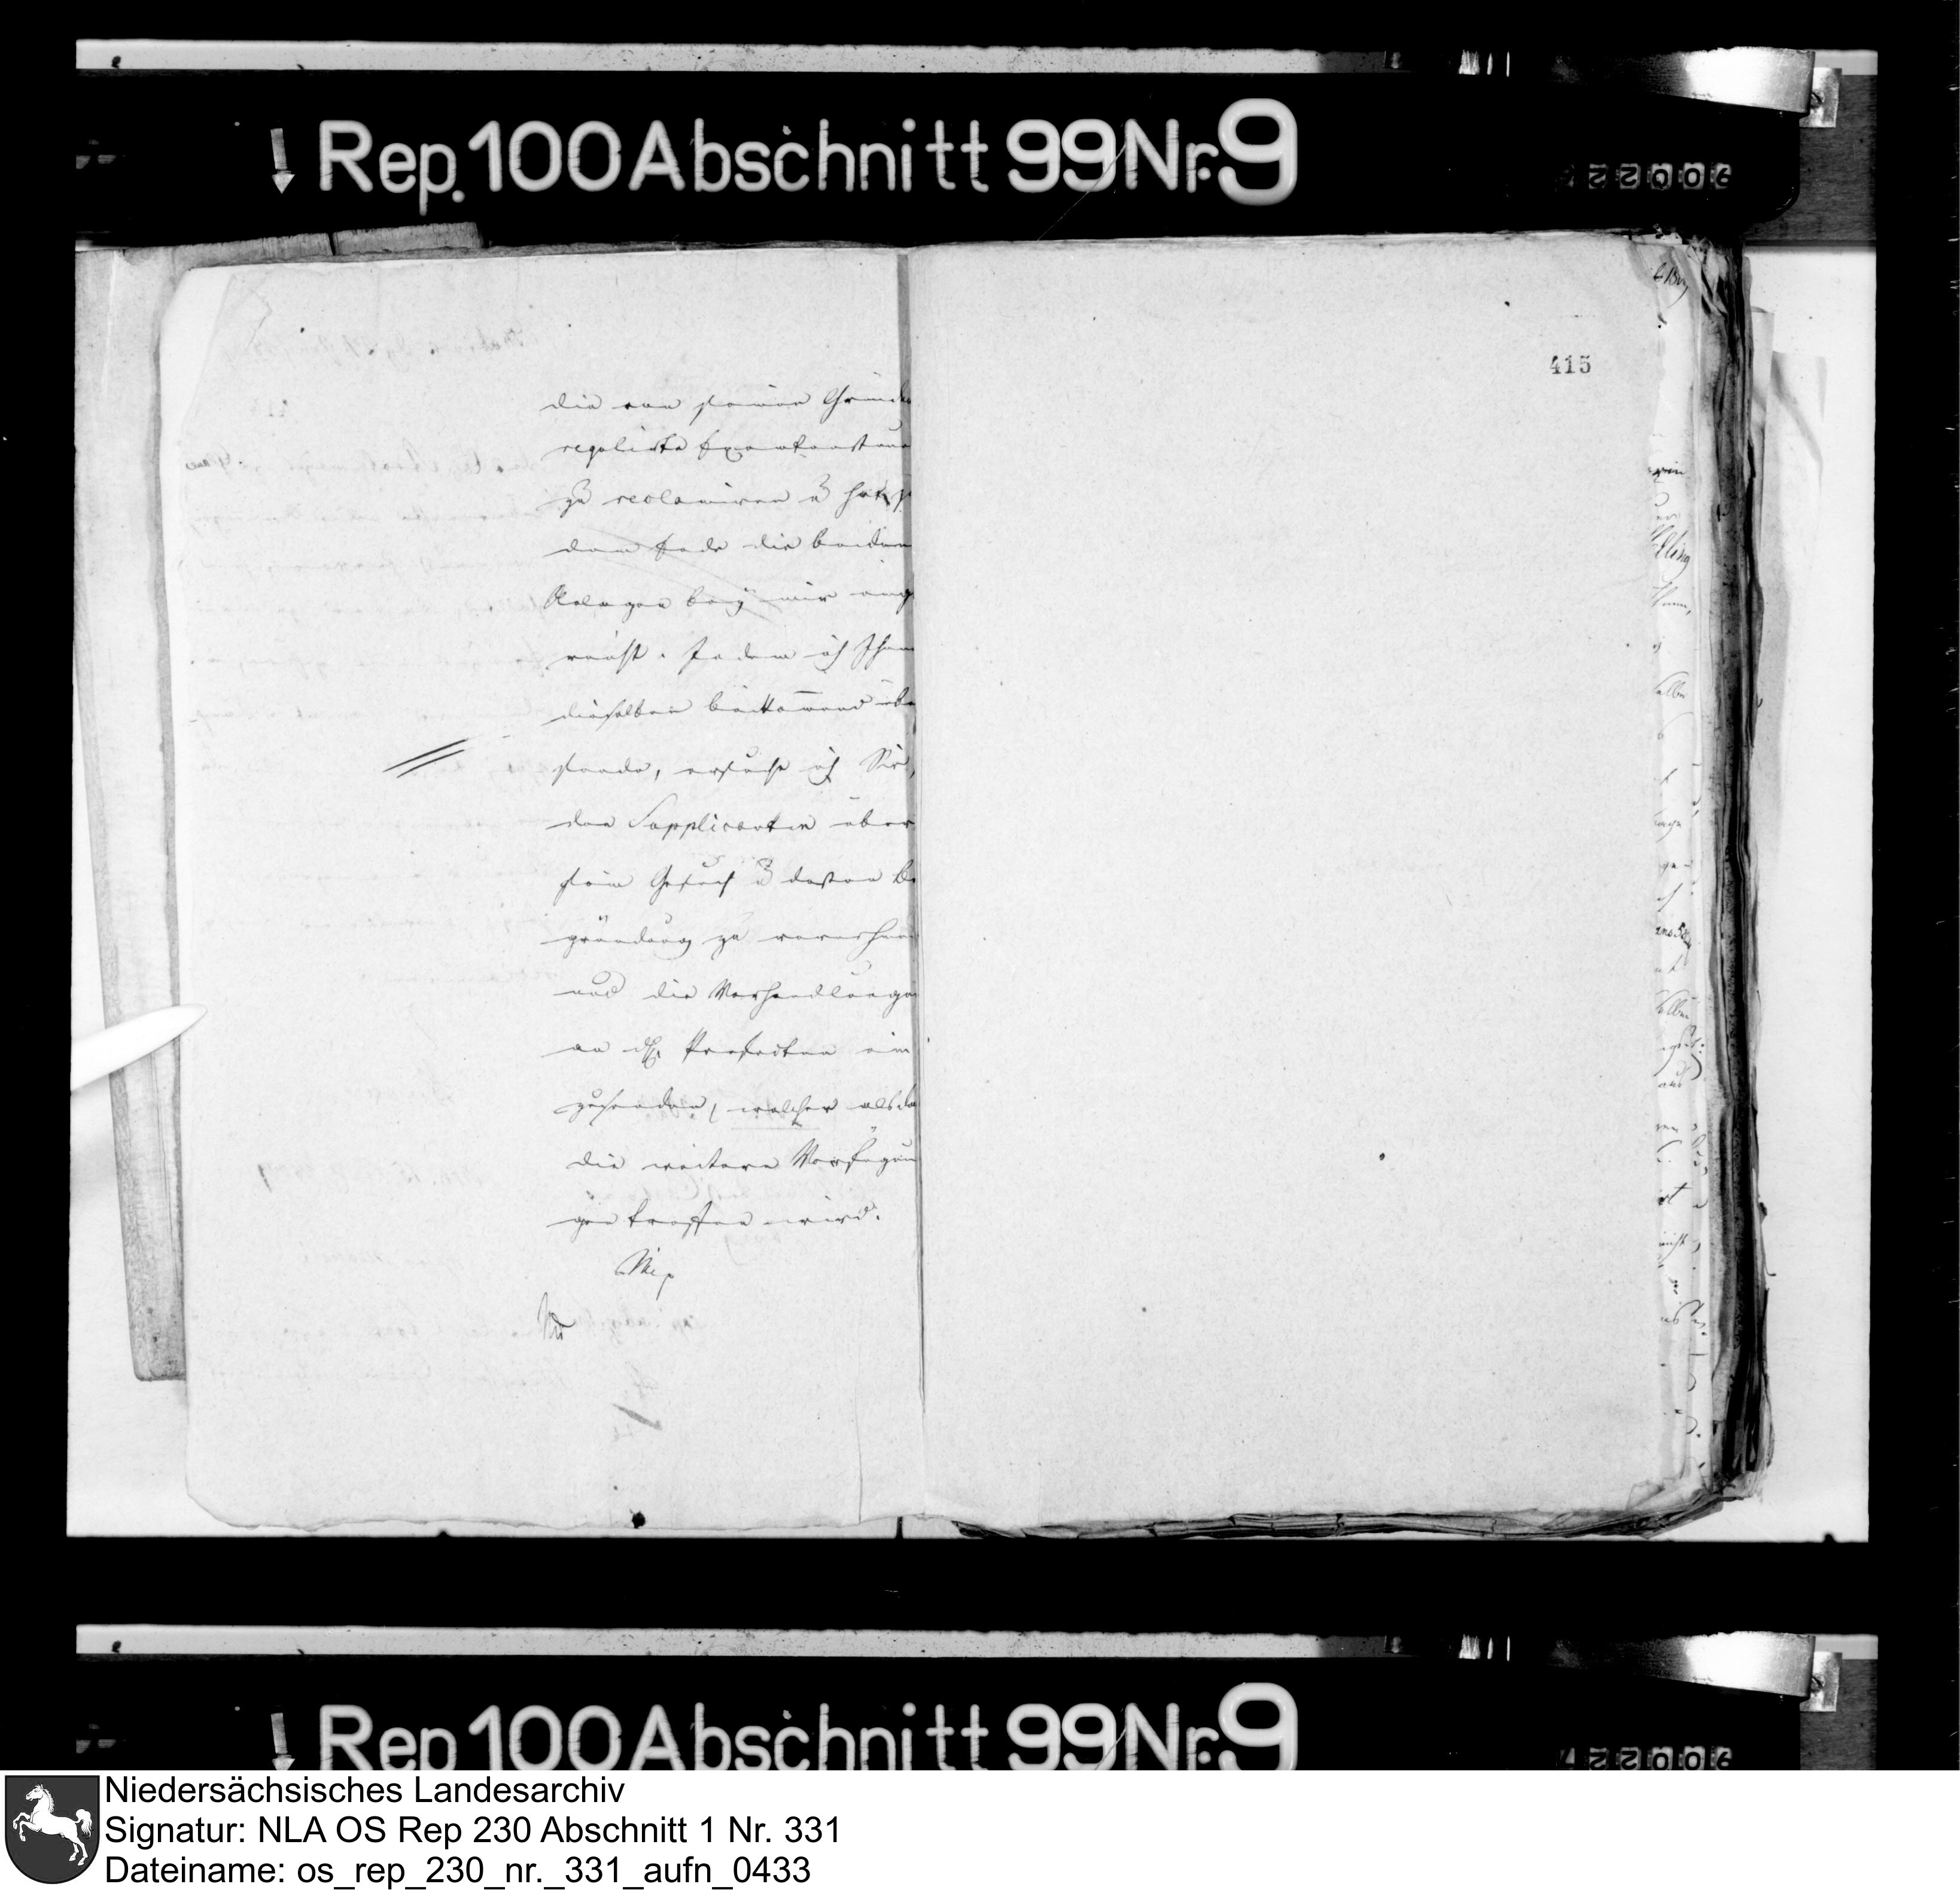 Rep. 100 Abschnitt 99 Nr. 9
415
die von seinen Gründe
regulirte Exemtensteuer
zu reclamiren u hat z
dem Ende die beiden
Anlagen bey mir einge
reicht. Indem ich Ihnen
dieselben beikommend übe
sende, ersuche ich Sie,
den Supplicanten über
sein Gesuch u dessen Be
gründung zu vernehmen
und die Verhandlungen
an H. Prefecten ein
zusenden, welcher alsda
die weitere Verfügun
gen treffen wird.
Rep 100 Abschnitt 99 Nr. 9
Niedersächsisches Landesarchiv
Signatur: NLA OS Rep 230 Abschnitt 1 Nr. 331
Dateiname: os_rep_230_nr._331_aufn_0433